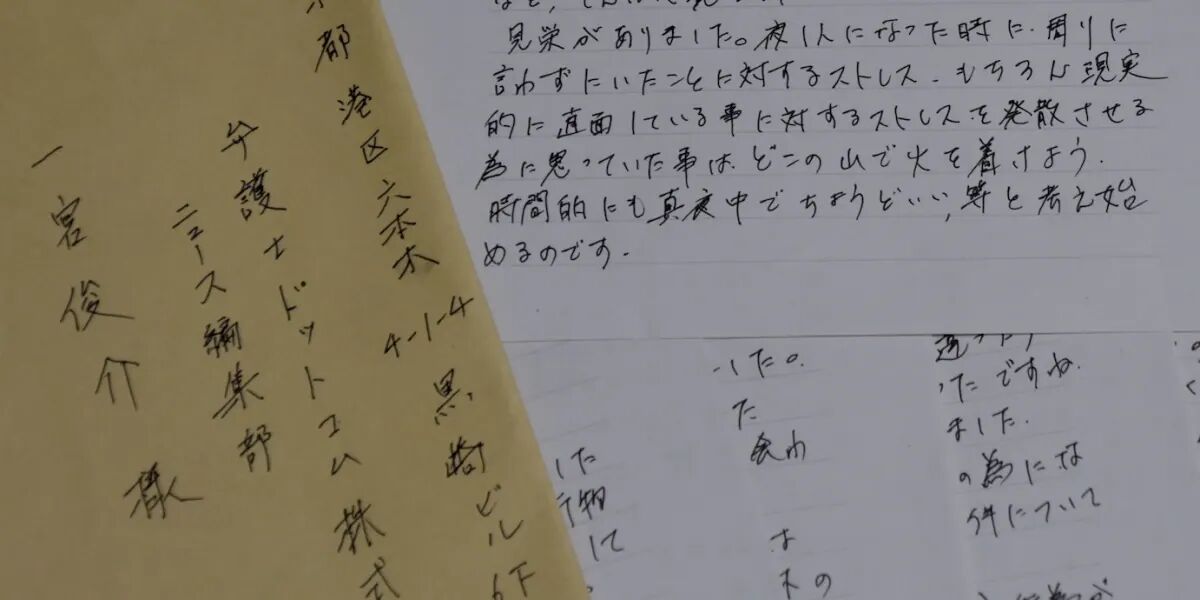 見栄がありました。夜1人になった時に、周りに
言わずにいたことに対するストレス、もちろん現実
的に直面している事に対するストレスを発散させる
為に思っていた事は、どこの山で火を着けよう、
時間的にも真夜中でちょうどいい、等と考え始
めるのです。
都港区六本木4-1-4 黒崎ビル6F
弁護士ドットコム株式
ニュース編集部
一宮俊介様
した。
た
会わ
は
木の
した
して
ったですね。
ました。
の為にな
件について